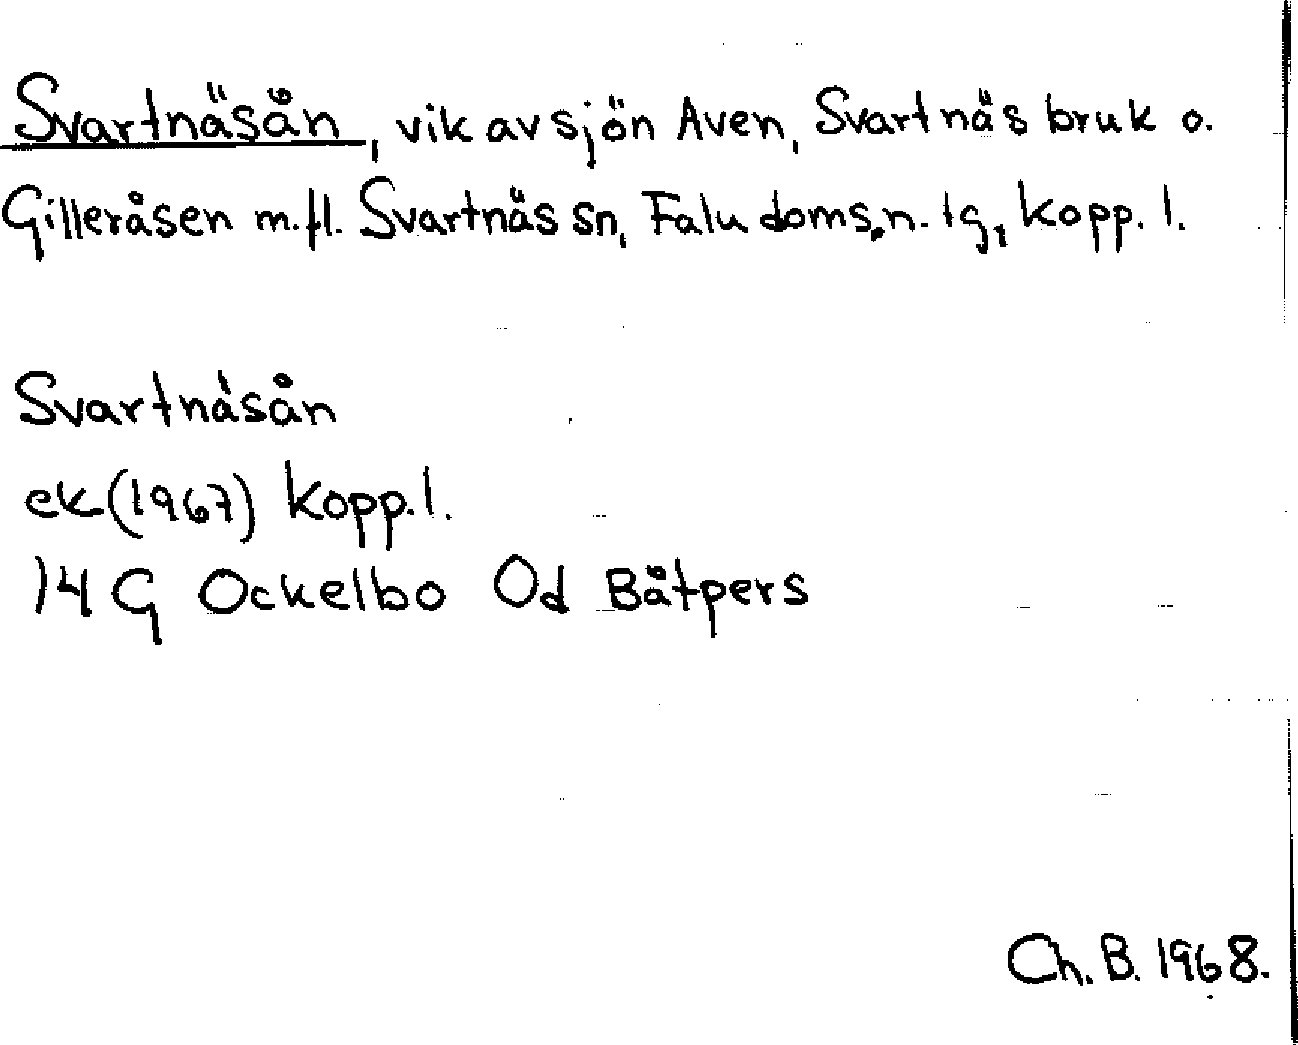 Svartnäsån, vik av sjön Aven, Svartnäs bruk o.
Gilleråsen m.fl. Svartnäs sn, Falu doms.n. tg, Kopp. l.
Svartnäsån
ek (1967) Kopp. l.
14 G Ockelbo Od Båtpers
Ch. B. 1968.